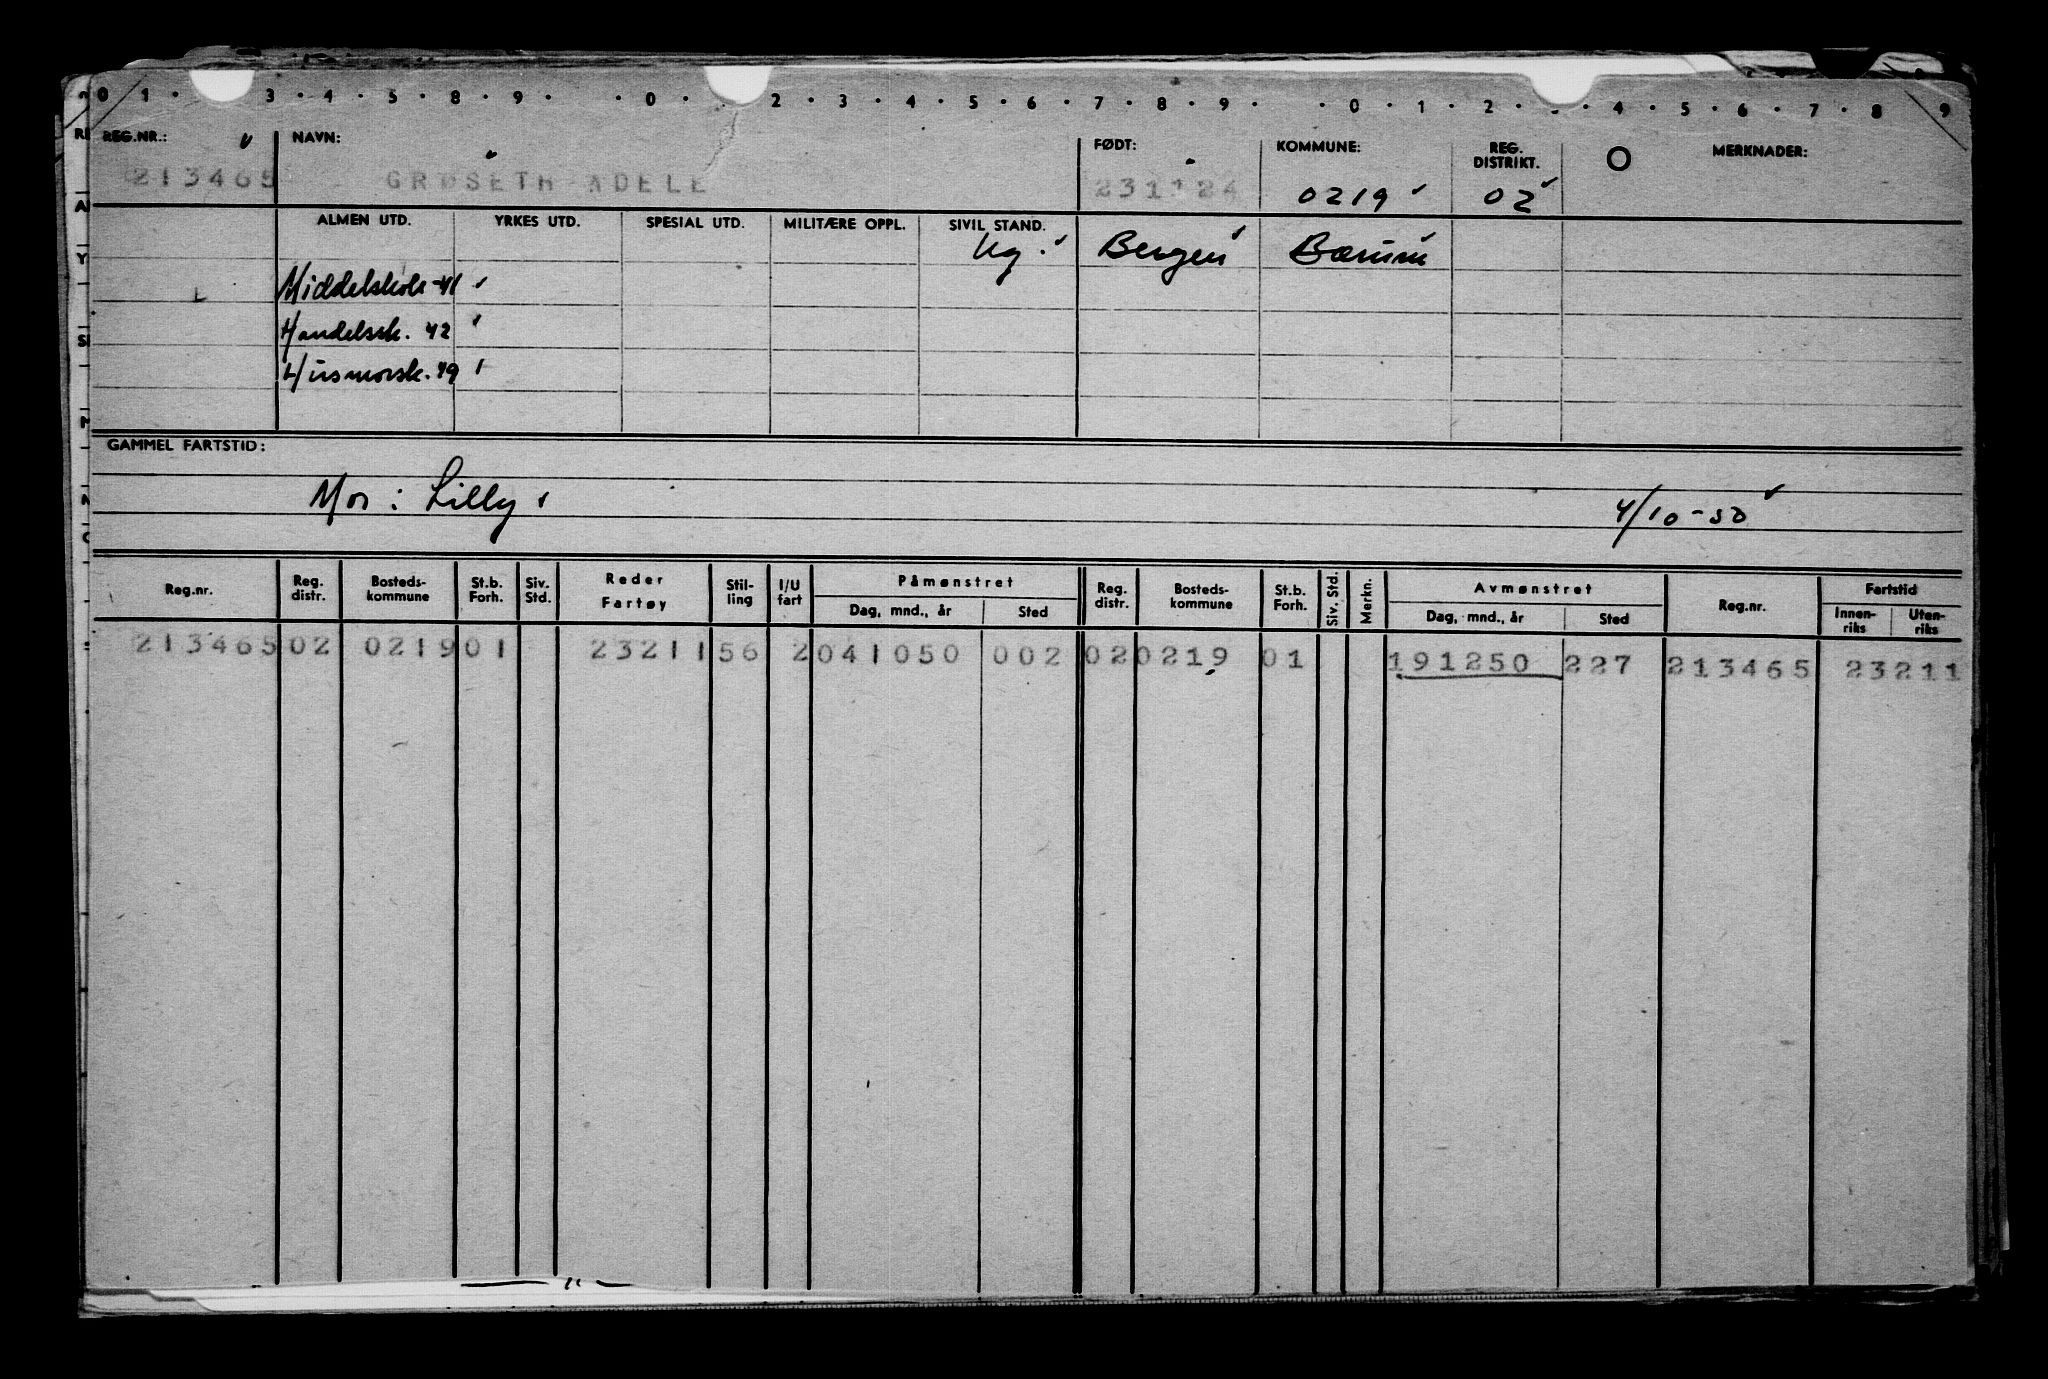 0 1 · 3 · 4 · 5 · 8 · 9 · · 0 · 2 · 3 · 4 · 5 · 6 · 7 · 8 · 9 · · 0 · 1 · 2 · 4 · 5 · 6 · 7 · 8 9
REG.NR.: NAVN: FØDT: KOMMUNE: REG. DISTRIKT. O MERKNADER:
213465 GRØSETH ADELE 231124 0219 02
ALMEN UTD. YRKES UTD. SPESIAL UTD. MILITÆRE OPPL. SIVIL STAND.
Ug. Bergen Bærum
Middelskole -41
Handelssk. 42
Husmorsk. 49
GAMMEL FARTSTID:
Mor: Lilly
4/10-50
Reg.nr. Reg. distr. Bosteds-kommune St.b. Forh. Siv. Std. Reder Fartøy Stil-ling I/U fart Påmønstret Dag, mnd., år Sted Reg. distr. Bosteds-kommune St.b. Forh. Siv. Std. Merkn. Avmønstret Dag, mnd., år Sted Reg.nr. Fartstid Innen-riks Uten-riks
213465 02 0219 01 23211 56 2 041050 002 02 0219 01 191250 227 213465 23211